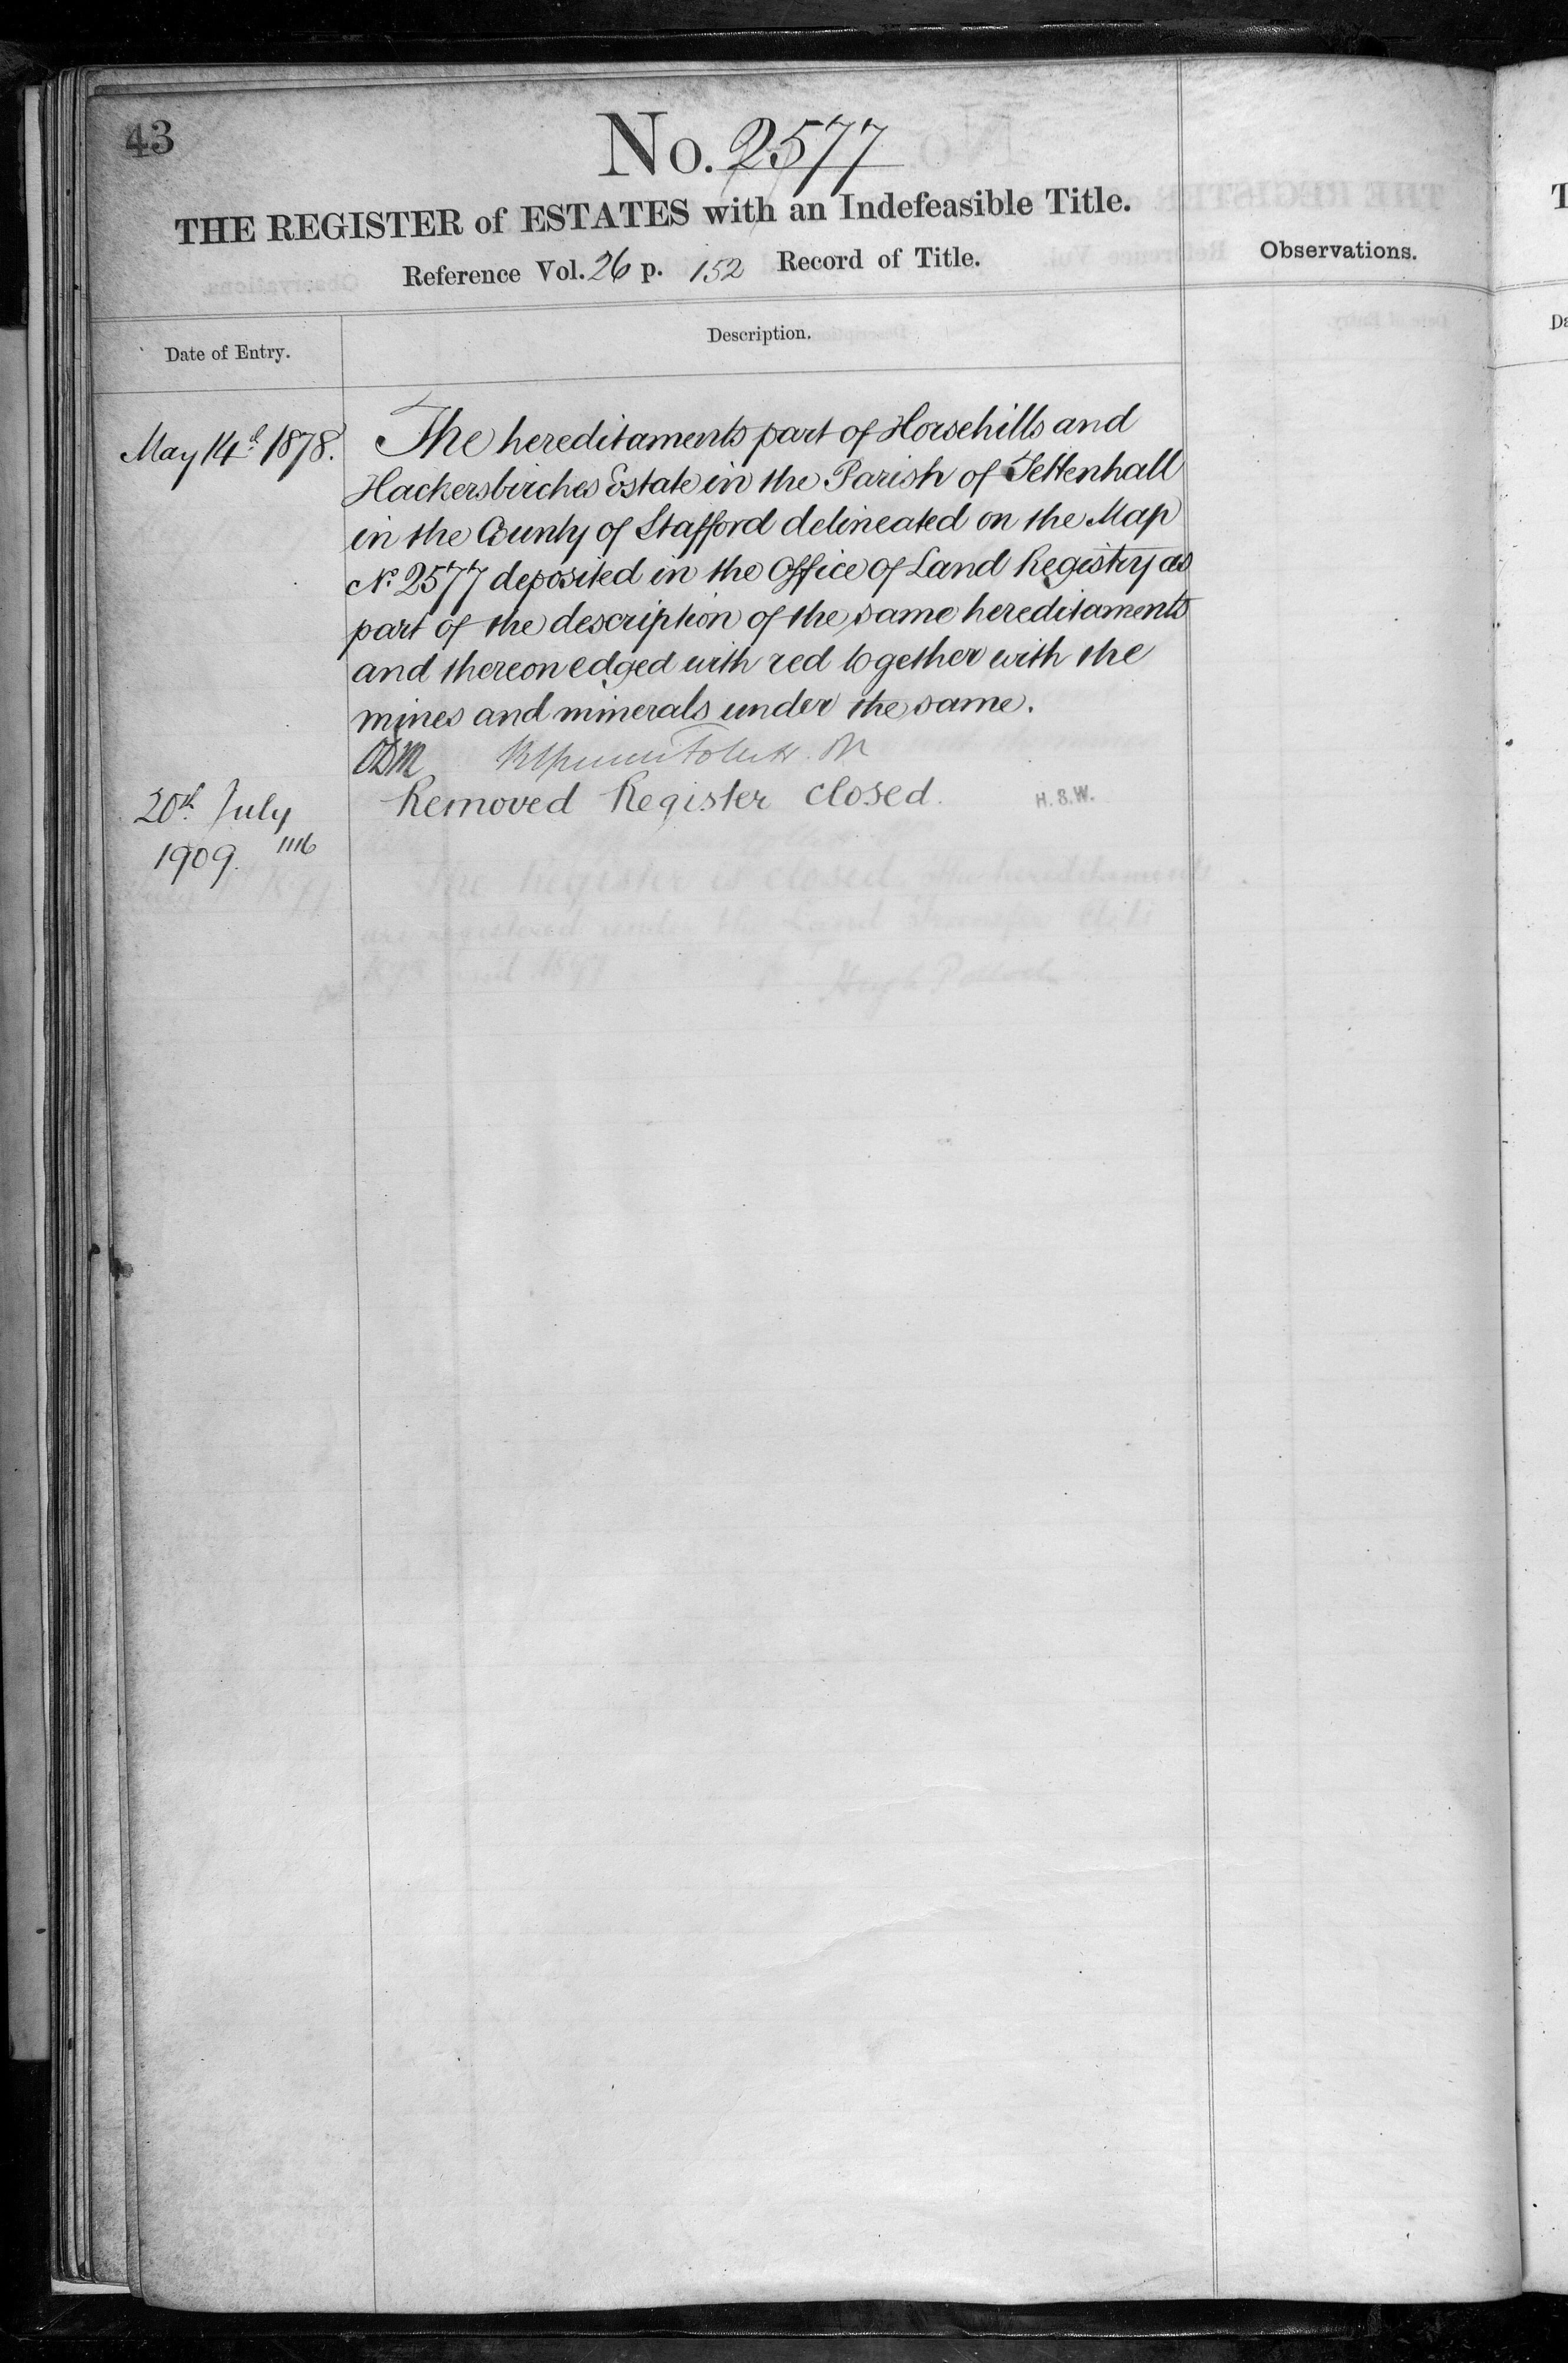 43
No. 2577
THE REGISTER of ESTATES with an Indefeasible Title.
Reference Vol. 26 p. 152 Record of Title.
Observations.
Date of Entry.
Description.
May 14th 1878.
The hereditaments part of Horsehills and
Hackersbirches Estate in the Parish of Tettenhall
in the County of Stafford delineated on the Map
No. 2577 deposited in the Office of Land Registry as
part of the description of the same hereditaments
and thereon edged with red together with the
mines and minerals under the same.
20th July
1909. 1116
Removed Register closed.
H.S.W.